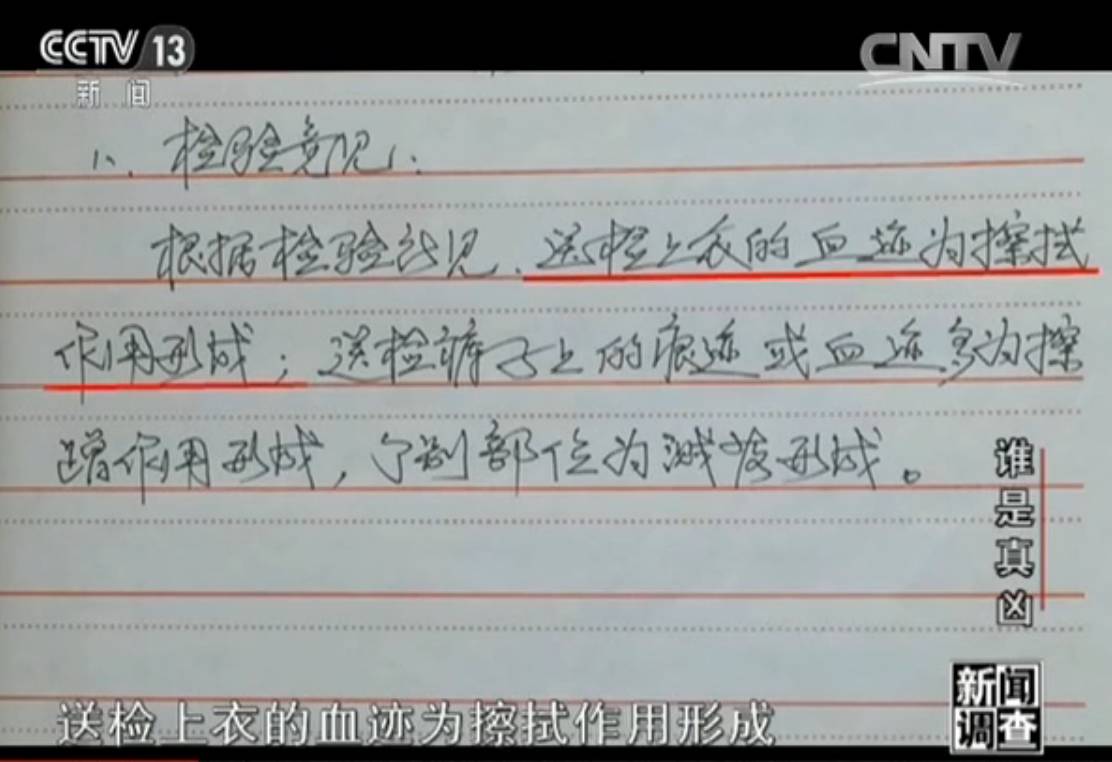 CCTV 13
新闻
CNTV
八、检验意见：
根据检验所见、送检上衣的血迹为擦拭
作用形成；送检裤子上的痕迹或血迹多为擦
蹭作用形成，个别部位为溅落形成。
谁是真凶
新闻
调查
送检上衣的血迹为擦拭作用形成